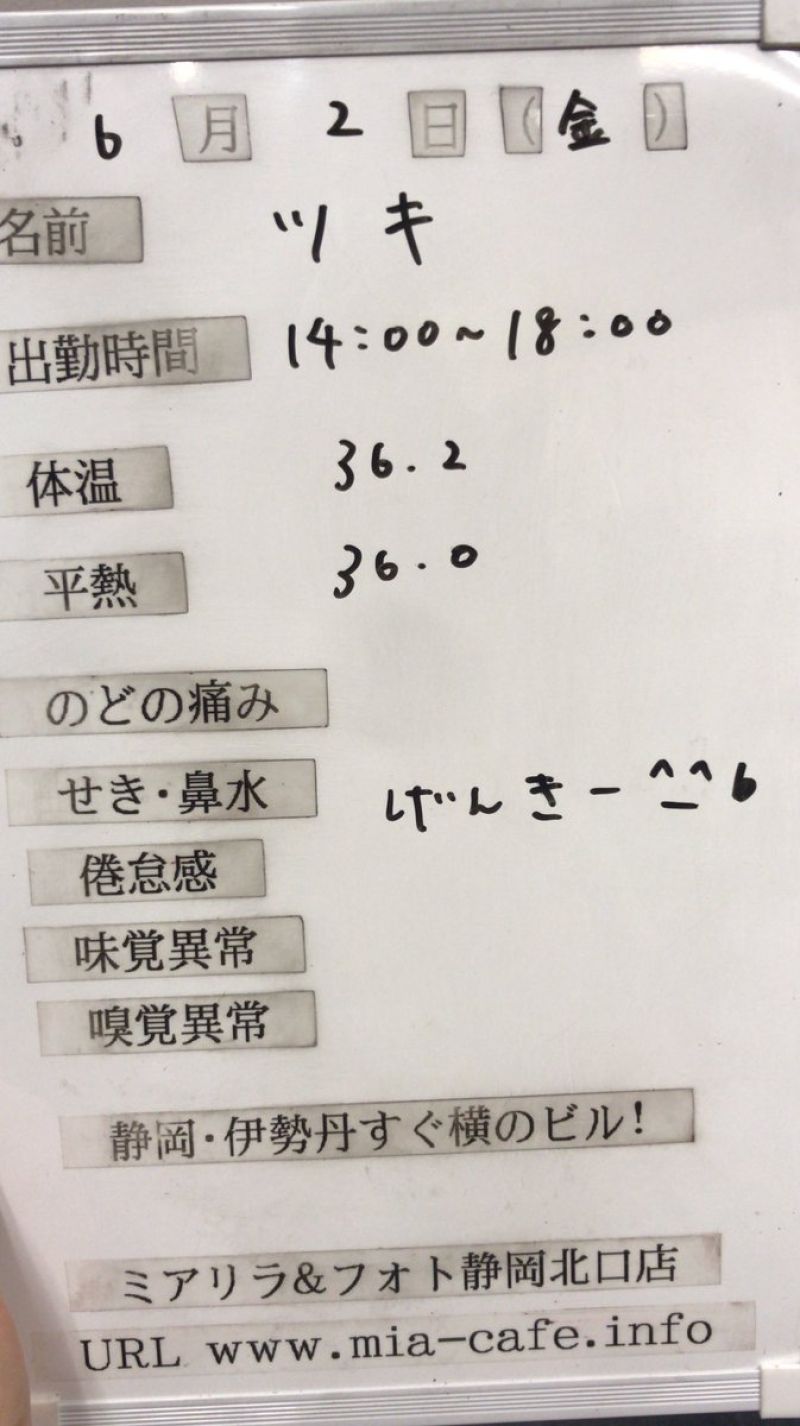 6月2日(金)
名前 ツキ
出勤時間 14:00~18:00
体温 36.2
平熱 36.0
のどの痛み
せき・鼻水 げんきー^_^b
倦怠感
味覚異常
嗅覚異常
静岡・伊勢丹すぐ横のビル!
ミアリラ&フォト静岡北口店
URL www.mia-cafe.info